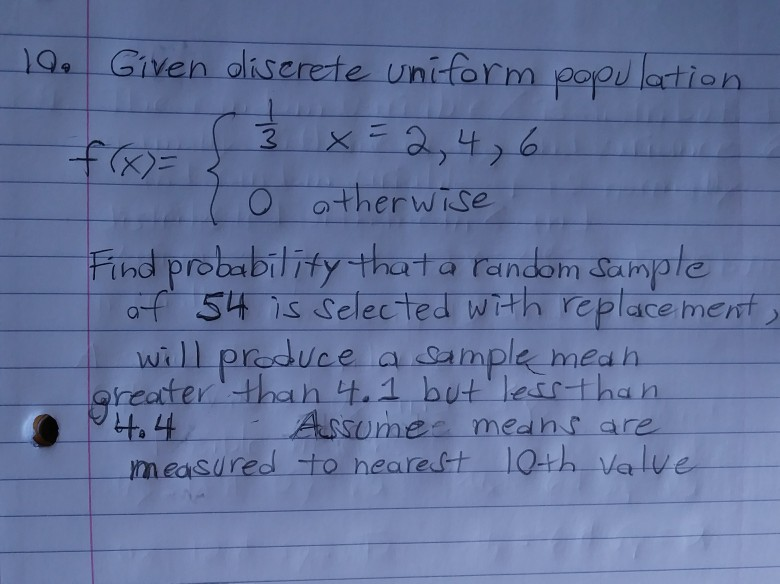 10. Given discrete uniform population
f(x)= { 1/3 x = 2, 4, 6
0 otherwise
Find probability that a random sample
of 54 is selected with replacement,
will produce a sample mean
greater than 4.1 but less than
4.4 Assume means are
measured to nearest 10th value